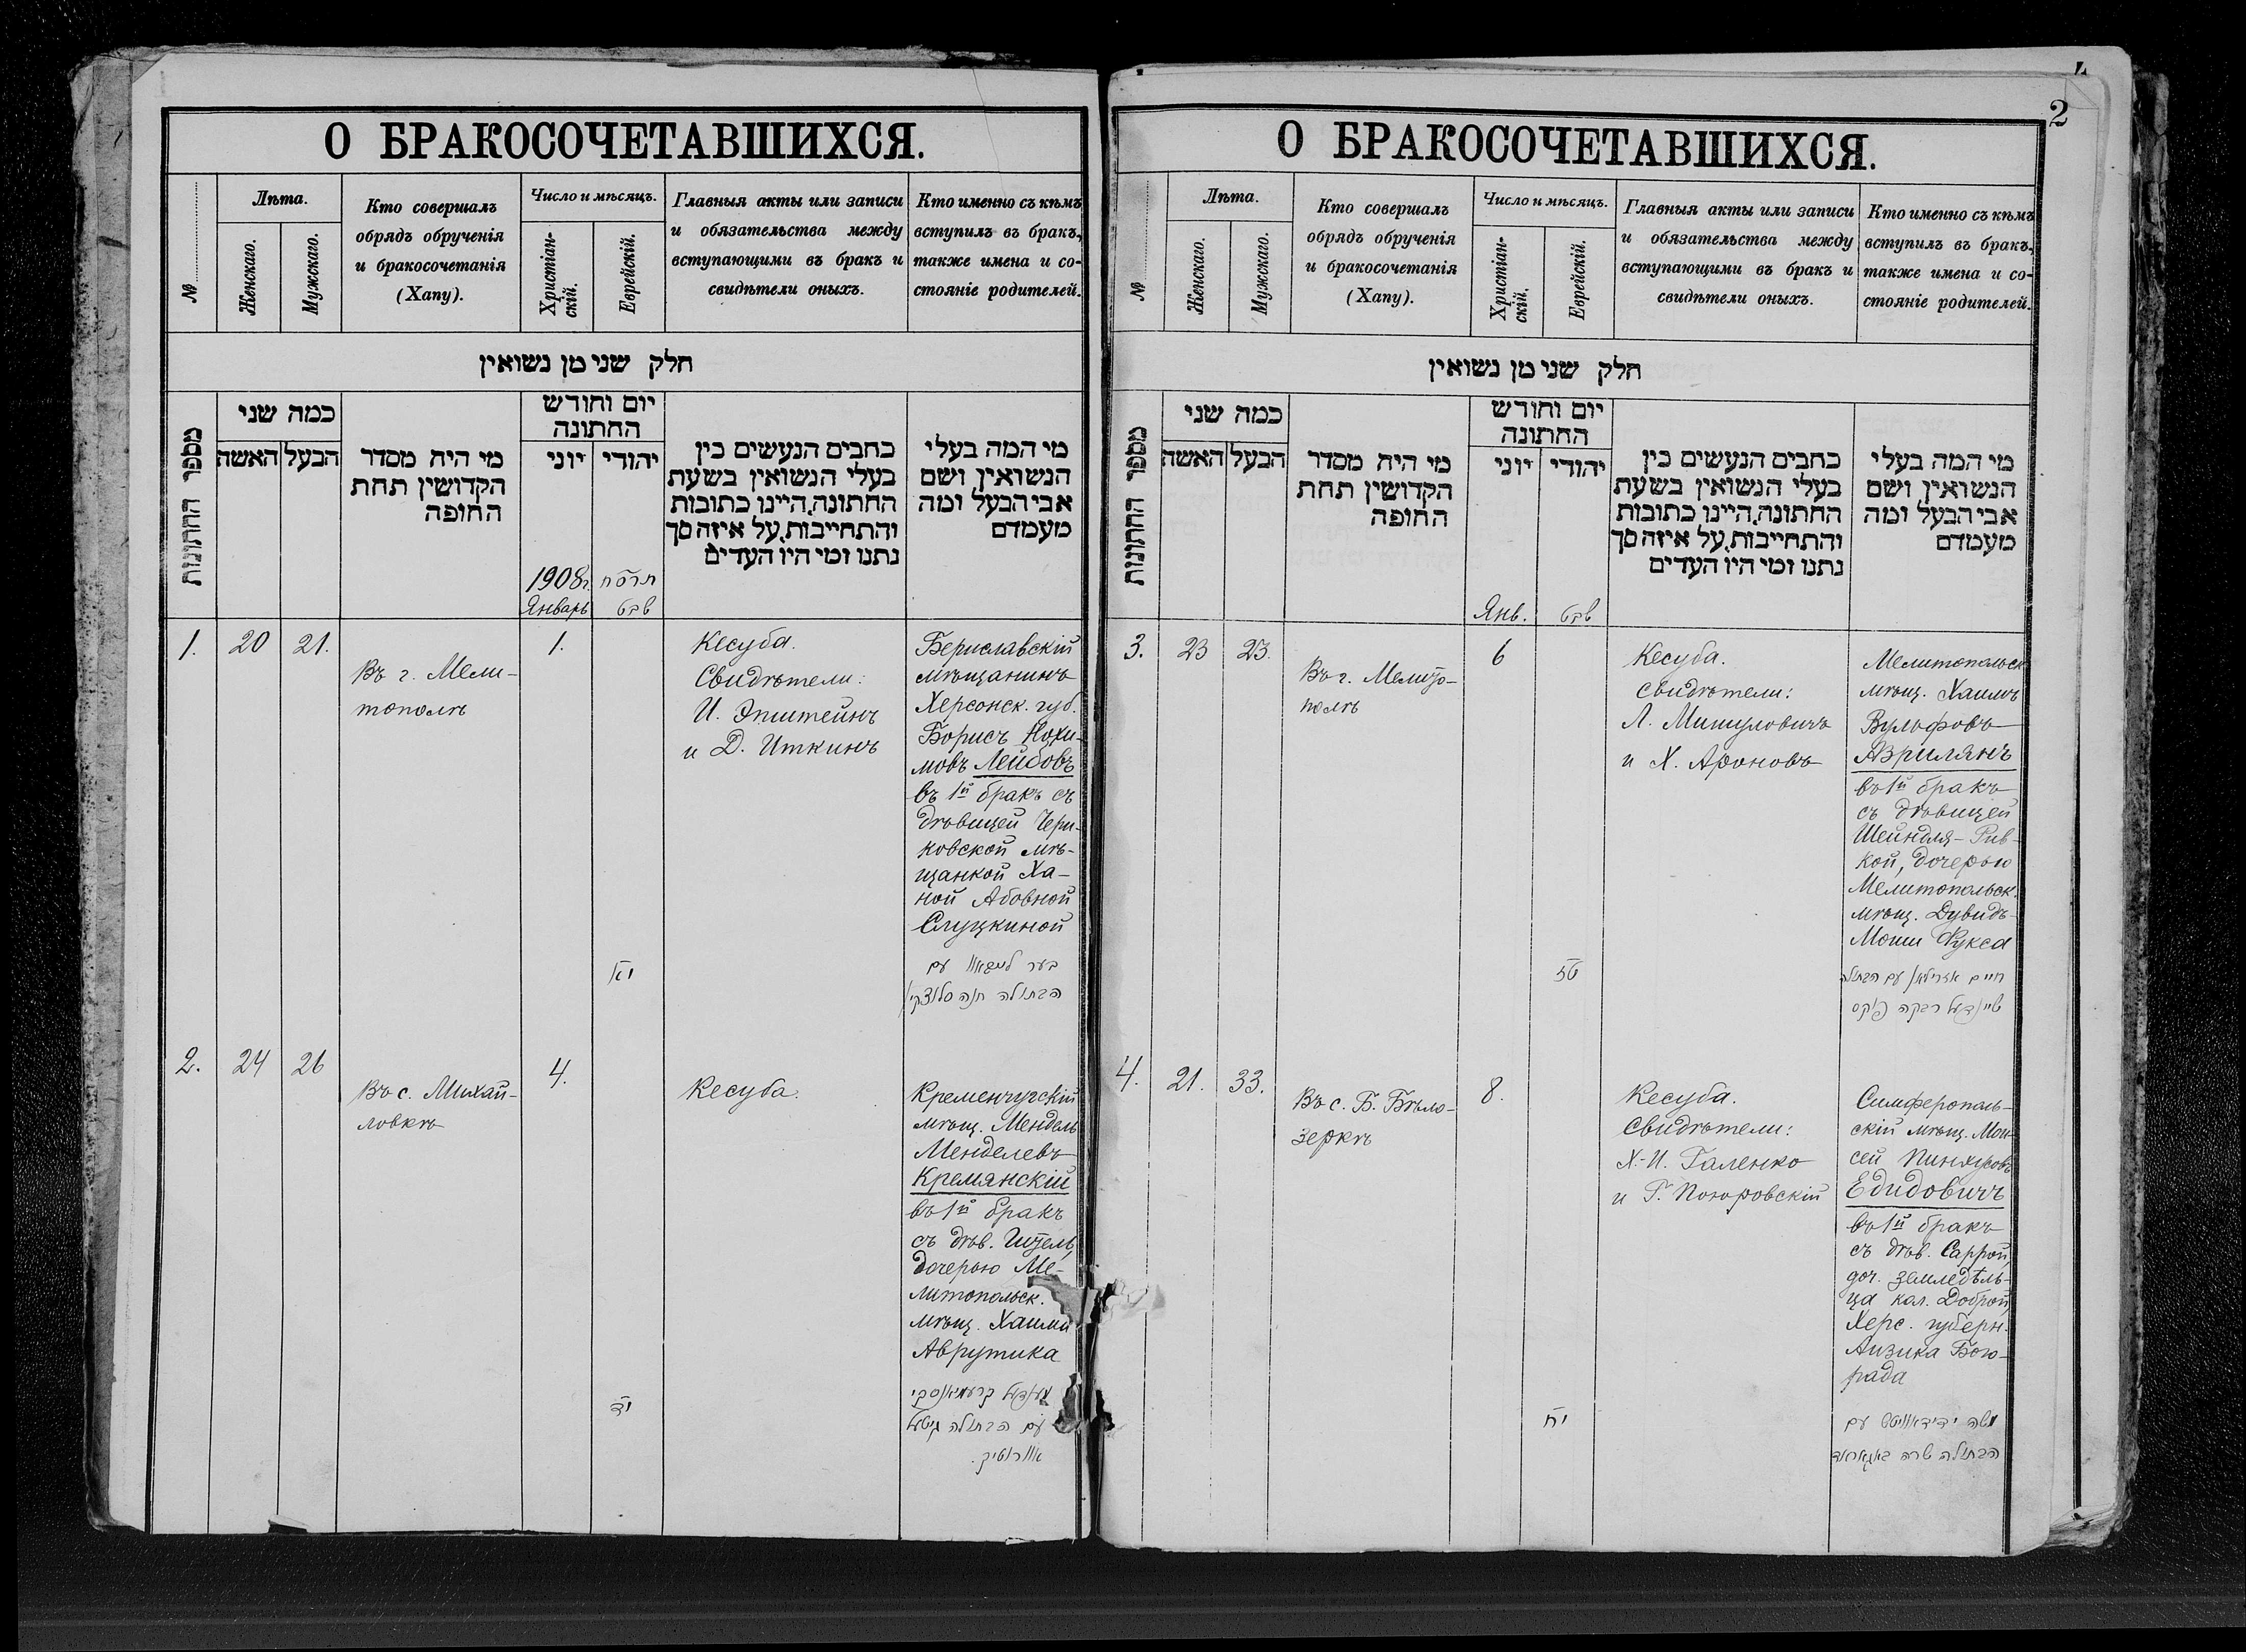 О БРАКОСОЧЕТАВШИХСЯ.
№
Лѣта.
Женскаго.
Мужскаго.
Кто совершалъ
обрядъ обрученія
и бракосочетанія
(Хапу).
Число и мѣсяцъ.
Христіан-
скій.
Еврейскій.
Главныя акты или записи
и обязательства между
вступающими въ бракъ и
свидѣтели оныхъ.
Кто именно съ кѣмъ
вступилъ въ бракъ,
также имена и со-
стояніе родителей.
חלק שני מן נשואין
מספר החתונות
כמה שני
האשה
הבעל
מי היה מסדר
הקדושין תחת
החופה
יום וחודש
החתונה
יוני
יהודי
כתבים הנעשים בין
בעלי הנשואין בשעת
החתונה,היינו כתובות
והתחייבות,על איזה סך
נתנו ומי היו העדים
מי המה בעלי
הנשואין ושם
אבי הבעל ומה
מעמדם
1908г.
Январь
תרסח
שבט
1.
20
21.
Въ г. Мели-
тополѣ
1.
יא
Кесуба.
Свидѣтели:
И. Эпштейнъ
и Д. Иткинъ
Бериславскій
мѣщанинъ
Херсонск. губ.
Борисъ Нохи-
мовъ Лейбовъ
въ 1й бракъ съ
дѣвицей Чери-
ковской мѣ-
щанкой Ха-
ной Абовной
Слуцкиной
עם
הבתולה חנה סלוצקין
2.
24
26
Въ с. Михай-
ловкѣ
4.
יד
Кесуба.
Кременчугскій
мѣщ. Мендель
Менделевъ
Кремянскій
въ 1й бракъ
съ дѣв. Гитель,
дочерью Ме-
литопольск.
мѣщ. Хаима
Аврутика
מענדעל קרעמיאנסקי
עם הבתולה גיטעל
אוורוטיק.
2
О БРАКОСОЧЕТАВШИХСЯ.
№
Лѣта.
Женскаго.
Мужскаго.
Кто совершалъ
обрядъ обрученія
и бракосочетанія
(Хапу).
Число и мѣсяцъ.
Христіан-
скій.
Еврейскій.
Главныя акты или записи
и обязательства между
вступающими въ бракъ и
свидѣтели оныхъ.
Кто именно съ кѣмъ
вступилъ въ бракъ,
также имена и со-
стояніе родителей.
חלק שני מן נשואין
מספר החתונות
כמה שני
האשה
הבעל
מי היה מסדר
הקדושין תחת
החופה
יום וחודש
החתונה
יוני
יהודי
כתבים הנעשים בין
בעלי הנשואין בשעת
החתונה,היינו כתובות
והתחייבות,על איזה סך
נתנו ומי היו העדים
מי המה בעלי
הנשואין ושם
אבי הבעל ומה
מעמדם
Янв.
שבט
3.
23
23.
Въ г. Мелито-
полѣ
6
טז
Кесуба.
Свидѣтели:
Л. Мишуловичъ
и Х. Ароновъ
Мелитопольск.
мѣщ. Хаимъ
Вульфовъ
Азрилянъ
въ 1й бракъ
съ дѣвицей
Шейндля-Рив-
кой, дочерью
Мелитопольск.
мѣщ. Дувидъ-
Моши Фукса
חיים אזרילאן עם הבתולה
שיינדעל רבקה פוקס
4.
21.
33.
Въ с. Б. Бѣло-
зеркѣ
8.
יח
Кесуба.
Свидѣтели:
Х.-И. Галенко
и Г. Погоровскій
Симферополь-
скій мѣщ. Мои-
сей Пинхусовъ
Едидовичъ
въ 1й бракъ
съ дѣв. Саррой,
доч. земледѣль-
ца кол. Доброй,
Херс. губерн.
Аизика Бого-
рада
משה ידידאוויטש עם
הבתולה שרה באגאראד